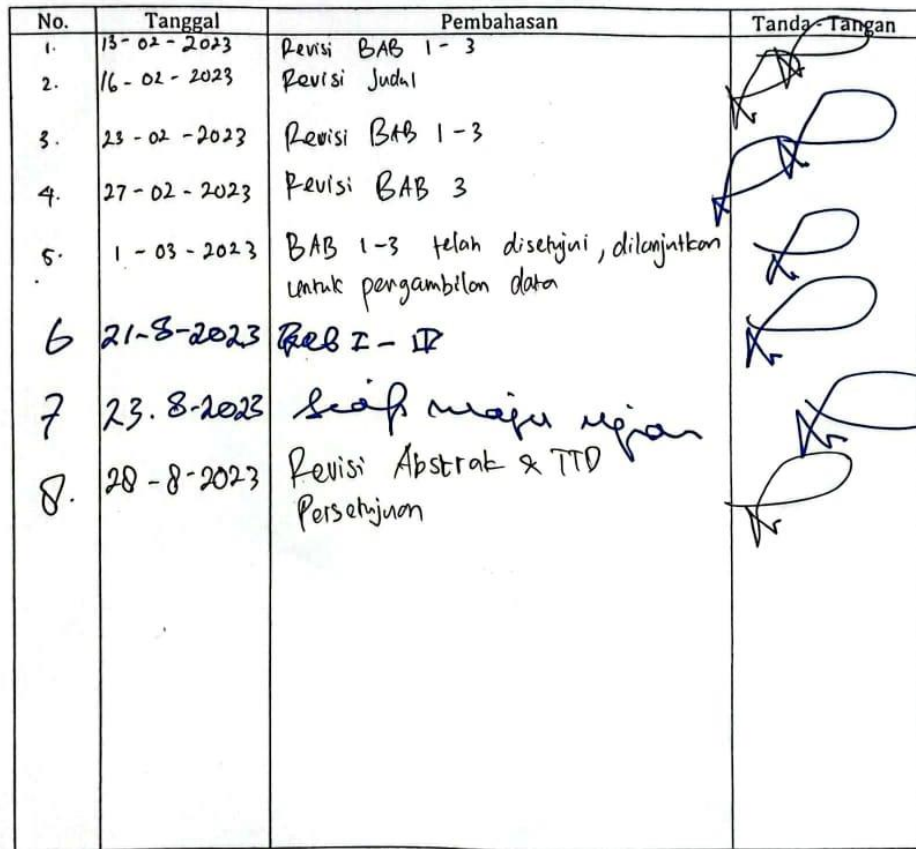 No. Tanggal Pembahasan Tanda - Tangan
1. 13-02-2023 Revisi BAB 1-3
2. 16-02-2023 Revisi Judul
3. 23-02-2023 Revisi BAB 1-3
4. 27-02-2023 Revisi BAB 3
5. 1-03-2023 BAB 1-3 telah disetujui, dilanjutkan
untuk pengambilan data
6 21-8-2023 Bab I -
7 23.8-2023 Siap maju ujian
8. 28-8-2023 Revisi Abstrak & TTD
Persetujuan